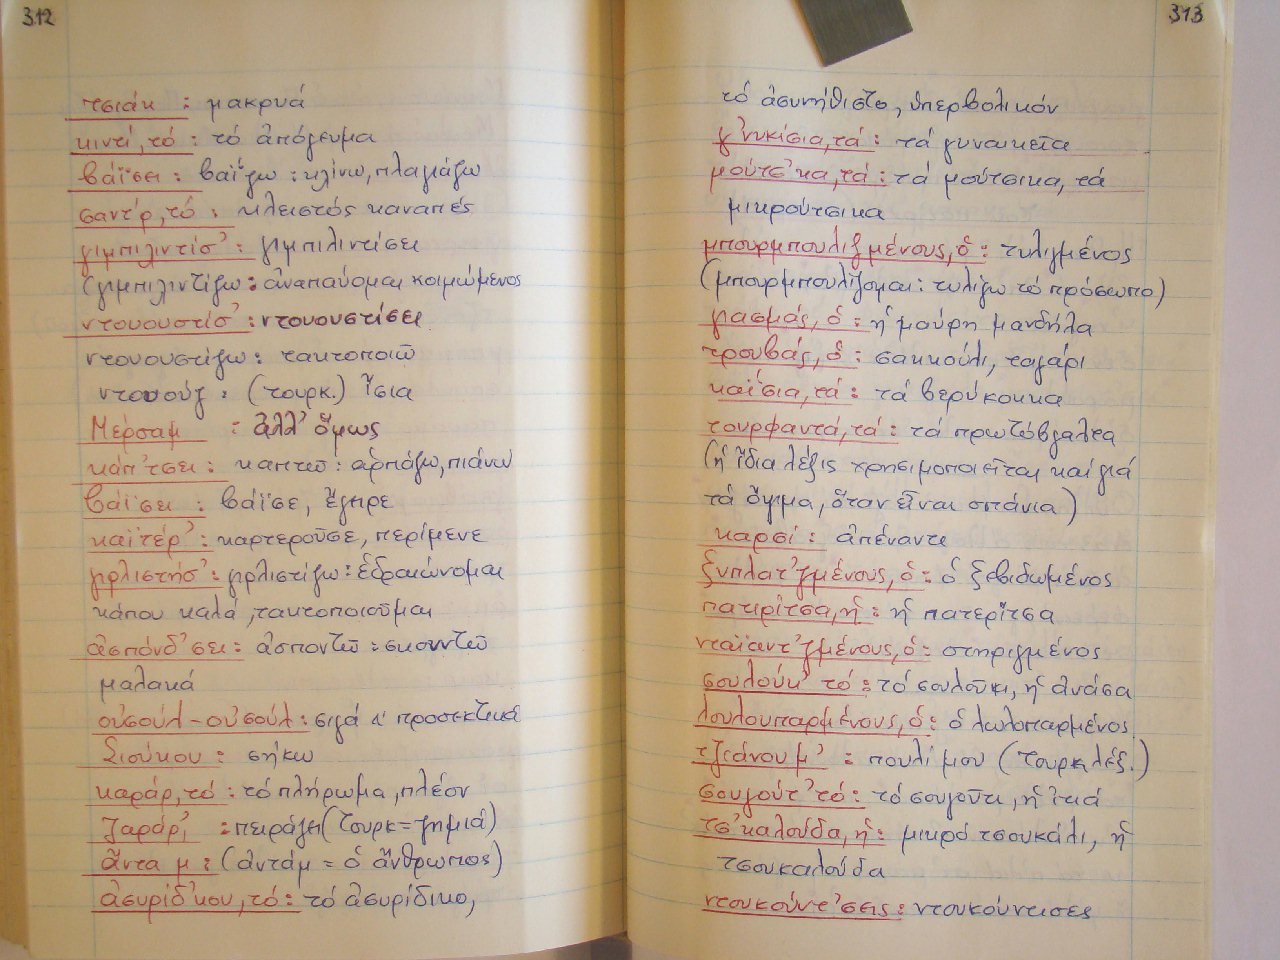 312
τσιάκ : μακρυά
κιντί, τό : τό ἀπόγευμα
βάϊσει : βαΐζω : κλίνω, πλαγιάζω
σαντίρ, τό : κλειστός καναπές
γιμπιλιντίσ' : γιμπιλιντίσει
(γιμπιλιντίζω : ἀναπαύομαι κοιμώμενος
ντουουστίσ' : ντουουστίσει
ντουουστίζω : τακτοποιῶ
ντουούζ : (τουρκ.) ἴσια
Μέρσαμ : ἀλλ' ὅμως
κάπ'τσει : καπτῶ : ἁρπάζω, πιάνω
βάϊσει : βάϊσε, ἔγειρε
καϊτέρ' : καρτεροῦσε, περίμενε
γιρλιστήσ' : γιρλιστίζω : ἑδραιώνομαι
κάπου καλά, τακτοποιοῦμαι
ἀσπόνδ'σει : ἀσποντῶ : σκουντῶ
μαλακά
οὐσούλ - οὐσούλ : σιγά κ' προσεκτικά
Σιούκου : σήκω
καράρ, τό : τό πλήρωμα, πλέον
ζαράρ' : πειράζει (τουρκ = ζημιά)
ἄντα μ : (ἀντάμ = ὁ ἄνθρωπος)
ἀσυρίδ'κου, τό : τό ἀσυρίδικο,
313
τό ἀσυνήθιστο, ὑπερβολικόν
γ'νυκίσια, τά : τά γυναικεῖα
μούτσ'κα, τά : τά μούτσικα, τά
μικρούτσικα
μπουρμπουλιζμένους, ὁ : τυλιγμένος
(μπουρμπουλίζομαι : τυλίγω τό πρόσωπο)
γιασμάς, ὁ : ἡ μαύρη μανδήλα
τρουβάς, ὁ : σακκούλι, ταγάρι
καΐσια, τά : τά βερύκοκκα
τουρφαντά, τά : τά πρωτόβγαλτα
(ἡ ἴδια λέξις χρησιμοποιεῖται καί γιά
τά ὄψιμα, ὅταν εἶναι σπάνια)
καρσί : ἀπέναντι
ξυπλατ'ζμένους, ὁ : ὁ ξεβιδωμένος
πατιρίτσα, ἡ : ἡ πατερίτσα
νταϊαντ'ζμένους, ὁ : στηριγμένος
σουλούκ' τό : τό σουλούκι, ἡ ἀνάσα
λουλουπαρμένους, ὁ : ὁ λωλοπαρμένος
τζιάνουμ' : πουλί μου (Τουρκ λέξ.)
σουγούτ' τό : τό σουγούτι, ἡ ἰτιά
τσ'καλούδα, ἡ : μικρό τσουκάλι, ἡ
τσουκαλούδα
ντουκούντ'σεις : ντουκούντισες